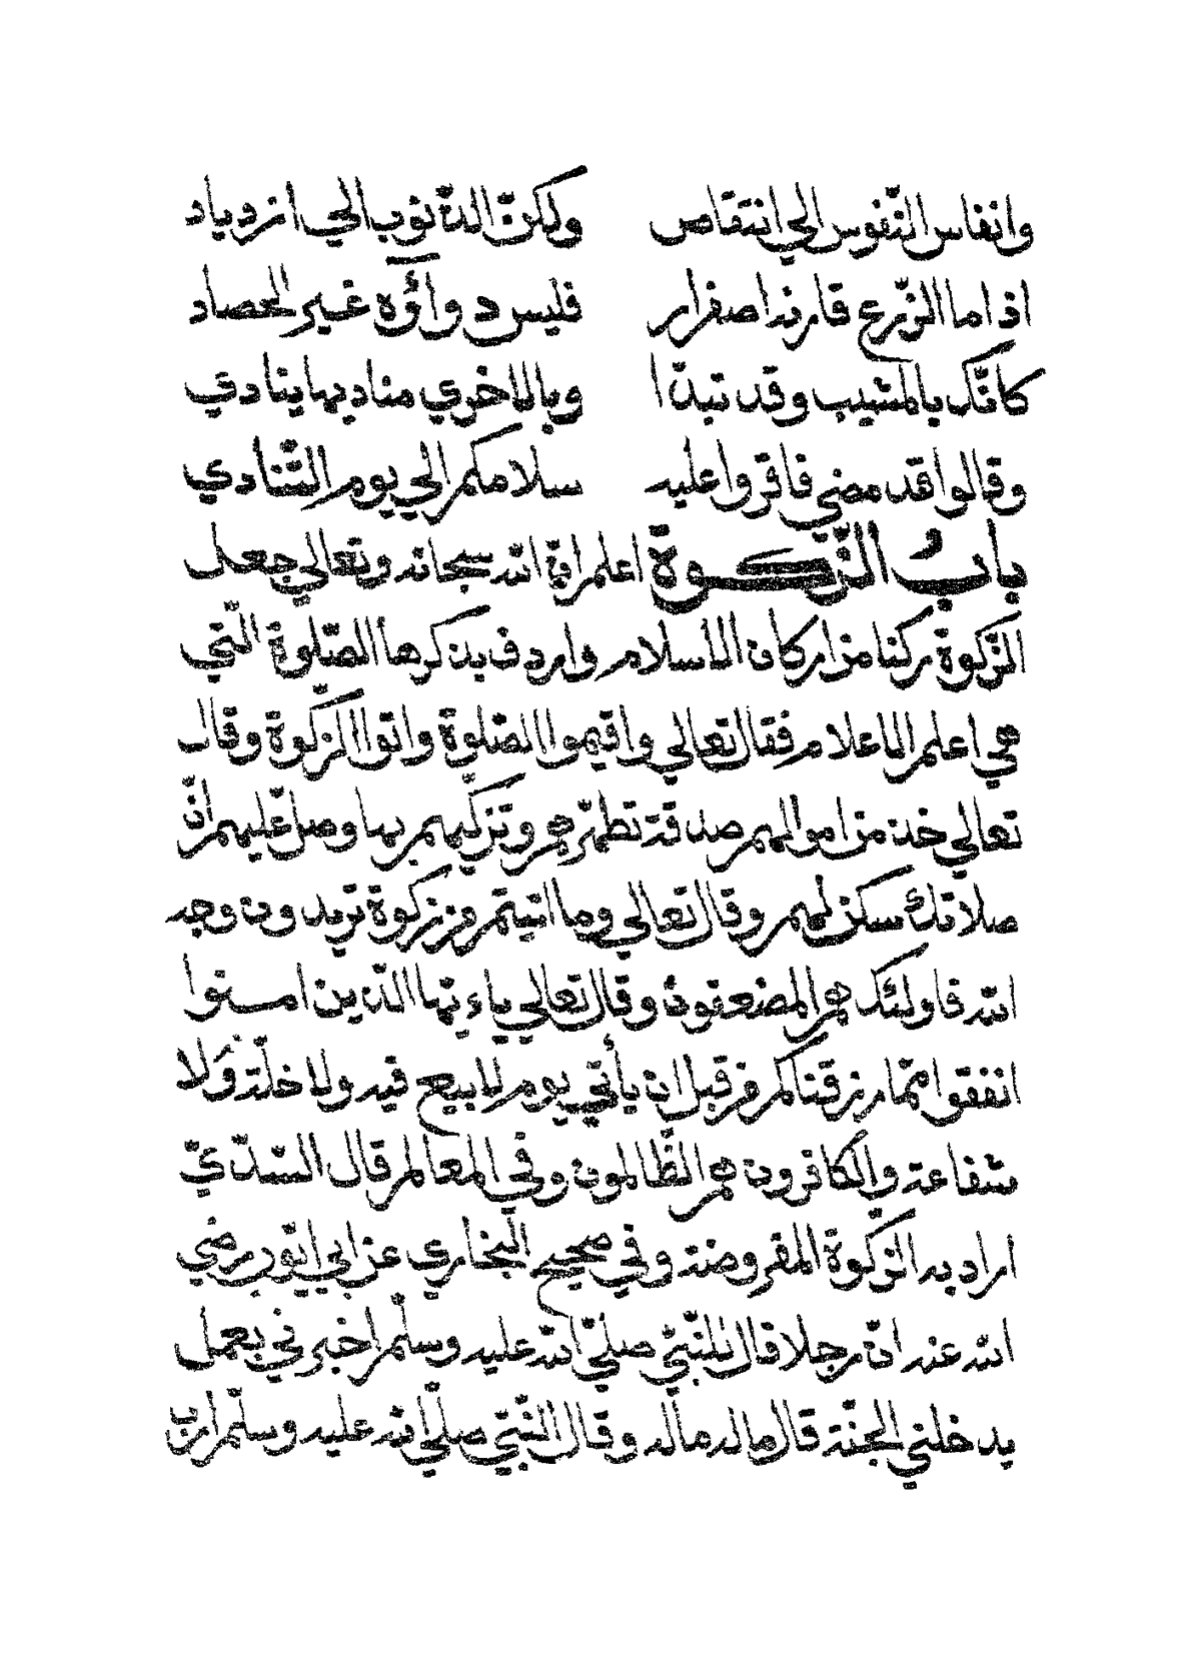 وانفاس النّفوس الي انتقاص ولكنّ الذنوب الي ازدياد
اذا ما الزّرع قارنه اصفرار فليس دوآؤه غير الحصاد
كانّك بالمشيب وقد تبدّا وبالاخري مناديها ينادي
وقالوا قد مضي فاقروا عليه سلامكم الي يوم التّنادي
باب الزّكوة اعلم انّ الله سبحانه وتعالي جعل
الزّكوة ركنا من اركان الاسلام واردف بذكرها الصّلوة الّتي
هي اعلم الاعلام فقال تعالي واقيموا الصّلوة واتوا الزكوة وقال
تعالي خذ من اموالهم صدقة تطهّرهم وتزكيهم بها وصلّ عليهم انّ
صلاتك سكن لهم وقال تعالي وما اتيتم من زكوة تريدون وجه
الله فاولئك هم المضعفون وقال تعالي ياءيّها الّذين امنوا
انفقوا ممّا رزقناكم من قبل ان يأتي يوم لا بيع فيه ولا خلّة ولا
شفاعة والكافرون هم الظّالمون وفي المعالم قال السّدّيّ
اراد به الزّكوة المفروضة وفي صحيح البخاري عن ابي ايّوب رضي
الله عنه انّ رجلا قال للنّبيّ صلّي الله عليه وسلّم اخبرني بعمل
يدخلني الجنّة قال ماله ماله وقال النّبيّ صلّي الله عليه وسلّم ارب